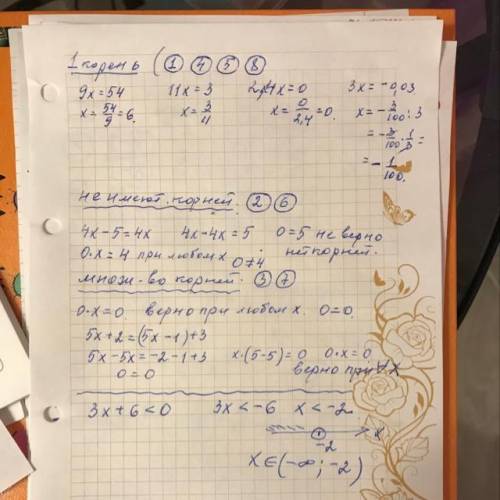 1 корень ( ① ④ ⑤ ⑧
9x=54 11x=3 2,4x=0 3x=-0,03
x=54/9=6. x=3/11 x=0/2,4=0. x=-3/100:3
=-3/100·1/3=
=-1/100.
не имеют корней. ② ⑥
4x-5=4x 4x-4x=5 0=5 не верно
0·x=4 при любом x 0≠4 нет корней.
множ-во корней. ③ ⑦
0·x=0. верно при любом x. 0=0.
5x+2=(5x-1)+3
5x-5x=-2-1+3 x·(5-5)=0 0·x=0
0=0 верно при ∀x
3x+6<0 3x<-6 x<-2
-2 x
x∈(-∞;-2)